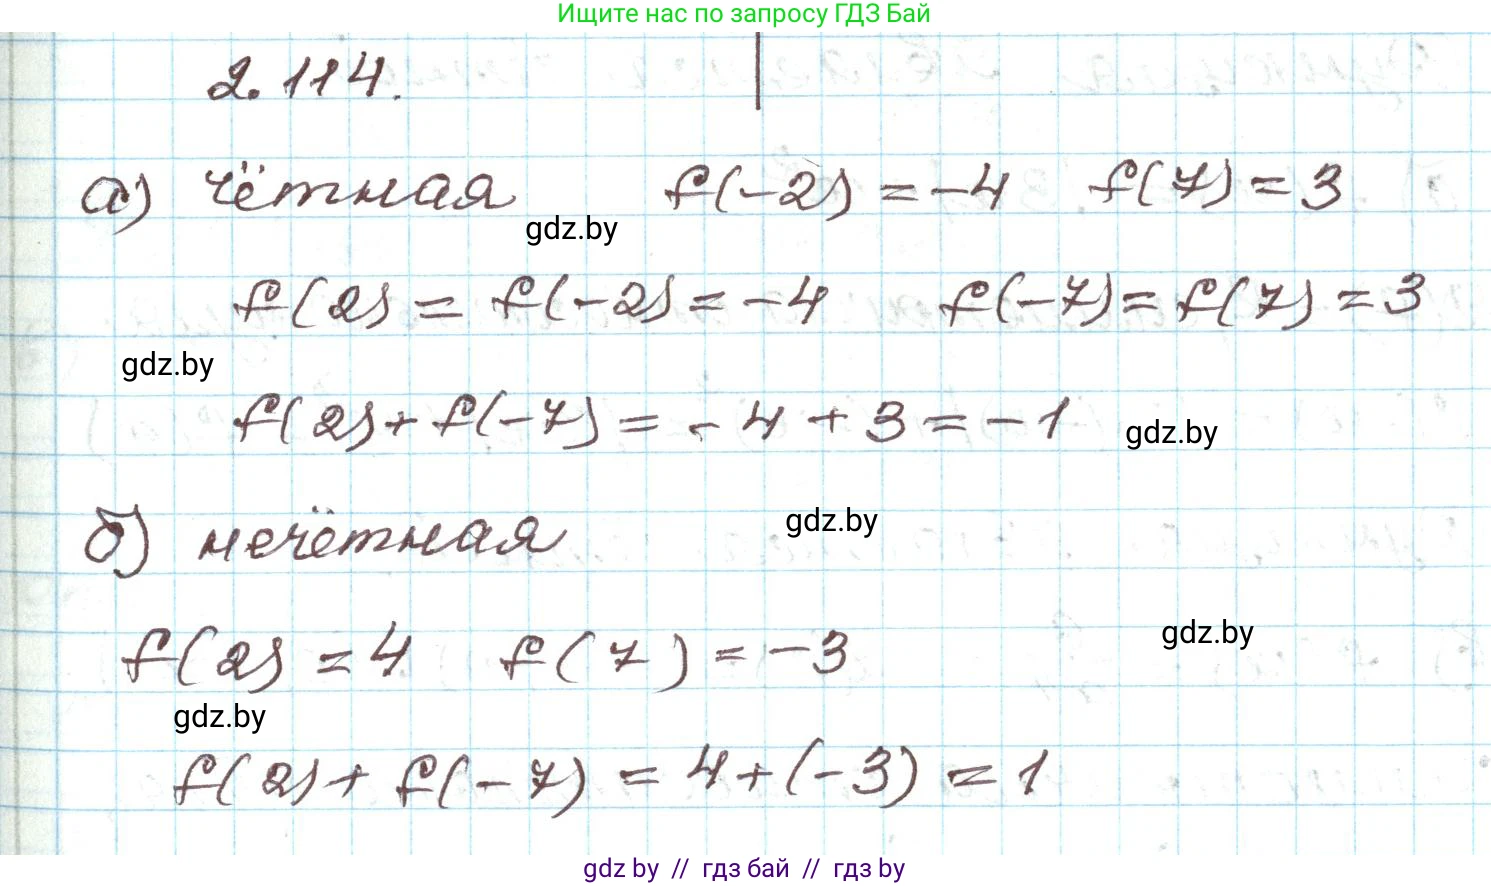 Ищите нас по запросу ГДЗ Бай
2.114.
а) чётная f(-2) = -4 f(7) = 3
gdz.by
f(2) = f(-2) = -4 f(-7) = f(7) = 3
gdz.by
f(2) + f(-7) = -4 + 3 = -1
gdz.by
б) нечётная
gdz.by
f(2) = 4 f(7) = -3
gdz.by
gdz.by
f(2) + f(-7) = 4 + (-3) = 1
gdz.by // гдз бай // гдз by